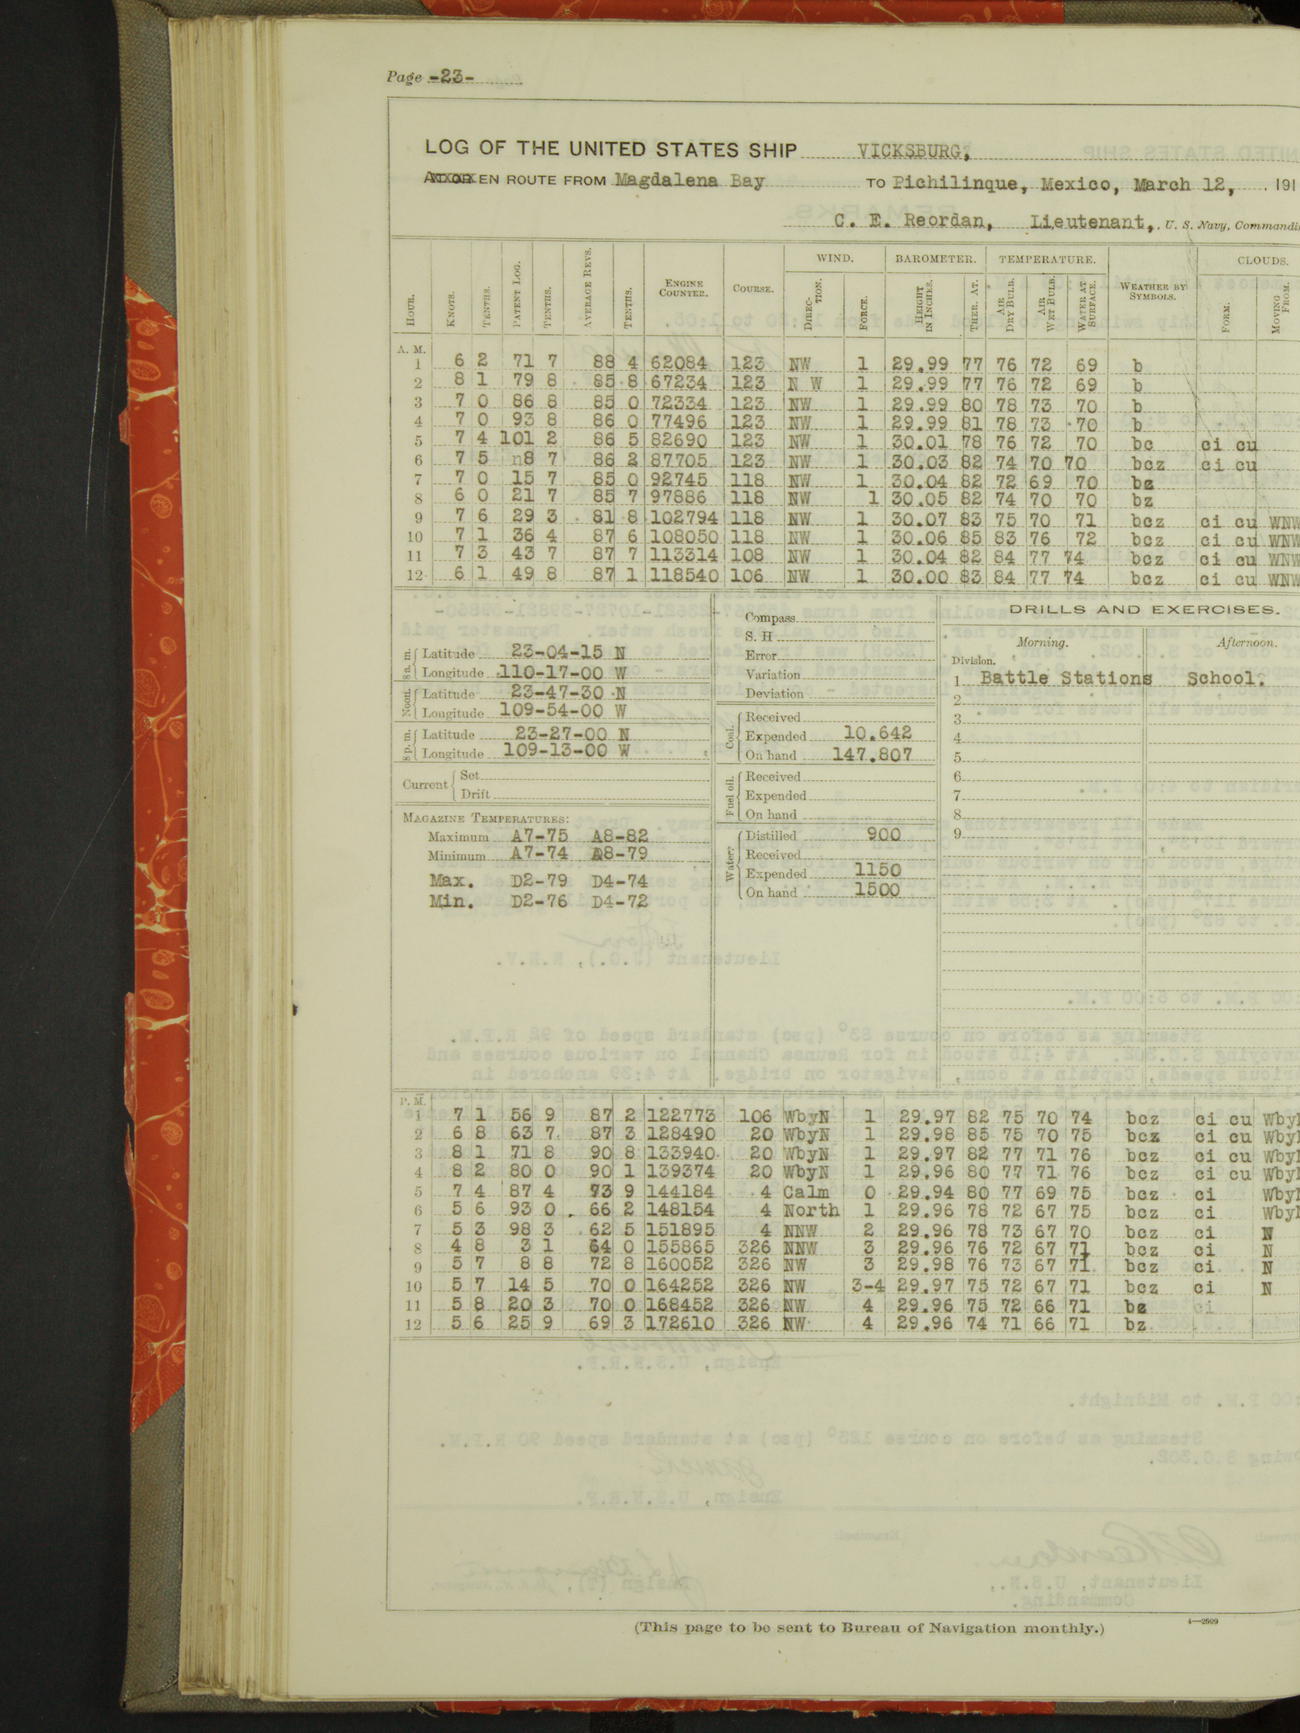 Page -23-
LOG OF THE UNITED STATES SHIP VICKSBURG,
EN ROUTE FROM Magdalena Bay TO Pichilinque, Mexico, March 12, 191
C. E. Reordan, Lieutenant, U. S. Navy, Commandi
WIND. BAROMETER. TEMPERATURE. CLOUDS.
HOUR. KNOTS. TENTHS. PATENT LOG. TENTHS. AVERAGE REVS. TENTHS. ENGINE COUNTER. COURSE. DIREC-TION. FORCE. HEIGHT IN INCHES. THER. AT. AIR DRY BULB. AIR WET BULB. WATER AT SURFACE. WEATHER BY SYMBOLS. FORM. MOVING FROM.
A. M.
1 6 2 71 7 88 4 62084 123 NW 1 29.99 77 76 72 69 b
2 8 1 79 8 85 8 67234 123 N W 1 29.99 77 76 72 69 b
3 7 0 86 8 85 0 72334 123 NW 1 29.99 80 78 73 70 b
4 7 0 93 8 86 0 77496 123 NW 1 29.99 81 78 73 70 b
5 7 4 101 2 86 5 82690 123 NW 1 30.01 78 76 72 70 bc ci cu
6 7 5 n8 7 86 2 87705 123 NW 1 30.03 82 74 70 70 bcz ci cu
7 7 0 15 7 85 0 92745 118 NW 1 30.04 82 72 69 70 bz
8 6 0 21 7 85 7 97886 118 NW 1 30.05 82 74 70 70 bz
9 7 6 29 3 81 8 102794 118 NW 1 30.07 83 75 70 71 bcz ci cu WNW
10 7 1 36 4 87 6 108050 118 NW 1 30.06 85 83 76 72 bcz ci cu WNW
11 7 3 43 7 87 7 113314 108 NW 1 30.04 82 84 77 74 bcz ci cu WNW
12 6 1 49 8 87 1 118540 106 NW 1 30.00 83 84 77 74 bcz ci cu WNW
8 a. m. Latitude 23-04-15 N
Longitude 110-17-00 W
Noon. Latitude 23-47-30 N
Longitude 109-54-00 W
8 p. m. Latitude 23-27-00 N
Longitude 109-13-00 W
Current Set
Drift
MAGAZINE TEMPERATURES:
Maximum A7-75 A8-82
Minimum A7-74 A8-79
Max. D2-79 D4-74
Min. D2-76 D4-72
Compass
S. H
Error
Variation
Deviation
Coal. Received
Expended 10.642
On hand 147.807
Fuel oil. Received
Expended
On hand
Water. Distilled 900
Received
Expended 1150
On hand 1500
DRILLS AND EXERCISES.
Morning. Afternoon.
Division.
1 Battle Stations School.
2
3
4
5
6
7
8
9
P. M.
1 7 1 56 9 87 2 122773 106 WbyN 1 29.97 82 75 70 74 bcz ci cu Wby
2 6 8 63 7 87 3 128490 20 WbyN 1 29.98 85 75 70 75 bcz ci cu Wby
3 8 1 71 8 90 8 133940 20 WbyN 1 29.97 82 77 71 76 bcz ci cu Wby
4 8 2 80 0 90 1 139374 20 WbyN 1 29.96 80 77 71 76 bcz ci cu Wby
5 7 4 87 4 73 9 144184 4 Calm 0 29.94 80 77 69 75 bcz ci Wby
6 5 6 93 0 66 2 148154 4 North 1 29.96 78 72 67 75 bcz ci Wby
7 5 3 98 3 62 5 151895 4 NNW 2 29.96 78 73 67 70 bcz ci N
8 4 8 3 1 64 0 155865 326 NNW 3 29.96 76 72 67 71 bcz ci N
9 5 7 8 8 72 8 160052 326 NW 3 29.98 76 73 67 71 bcz ci N
10 5 7 14 5 70 0 164252 326 NW 3-4 29.97 75 72 67 71 bcz ci N
11 5 8 20 3 70 0 168452 326 NW 4 29.96 75 72 66 71 bz
12 5 6 25 9 69 3 172610 326 NW 4 29.96 74 71 66 71 bz
(This page to be sent to Bureau of Navigation monthly.)
4—2509